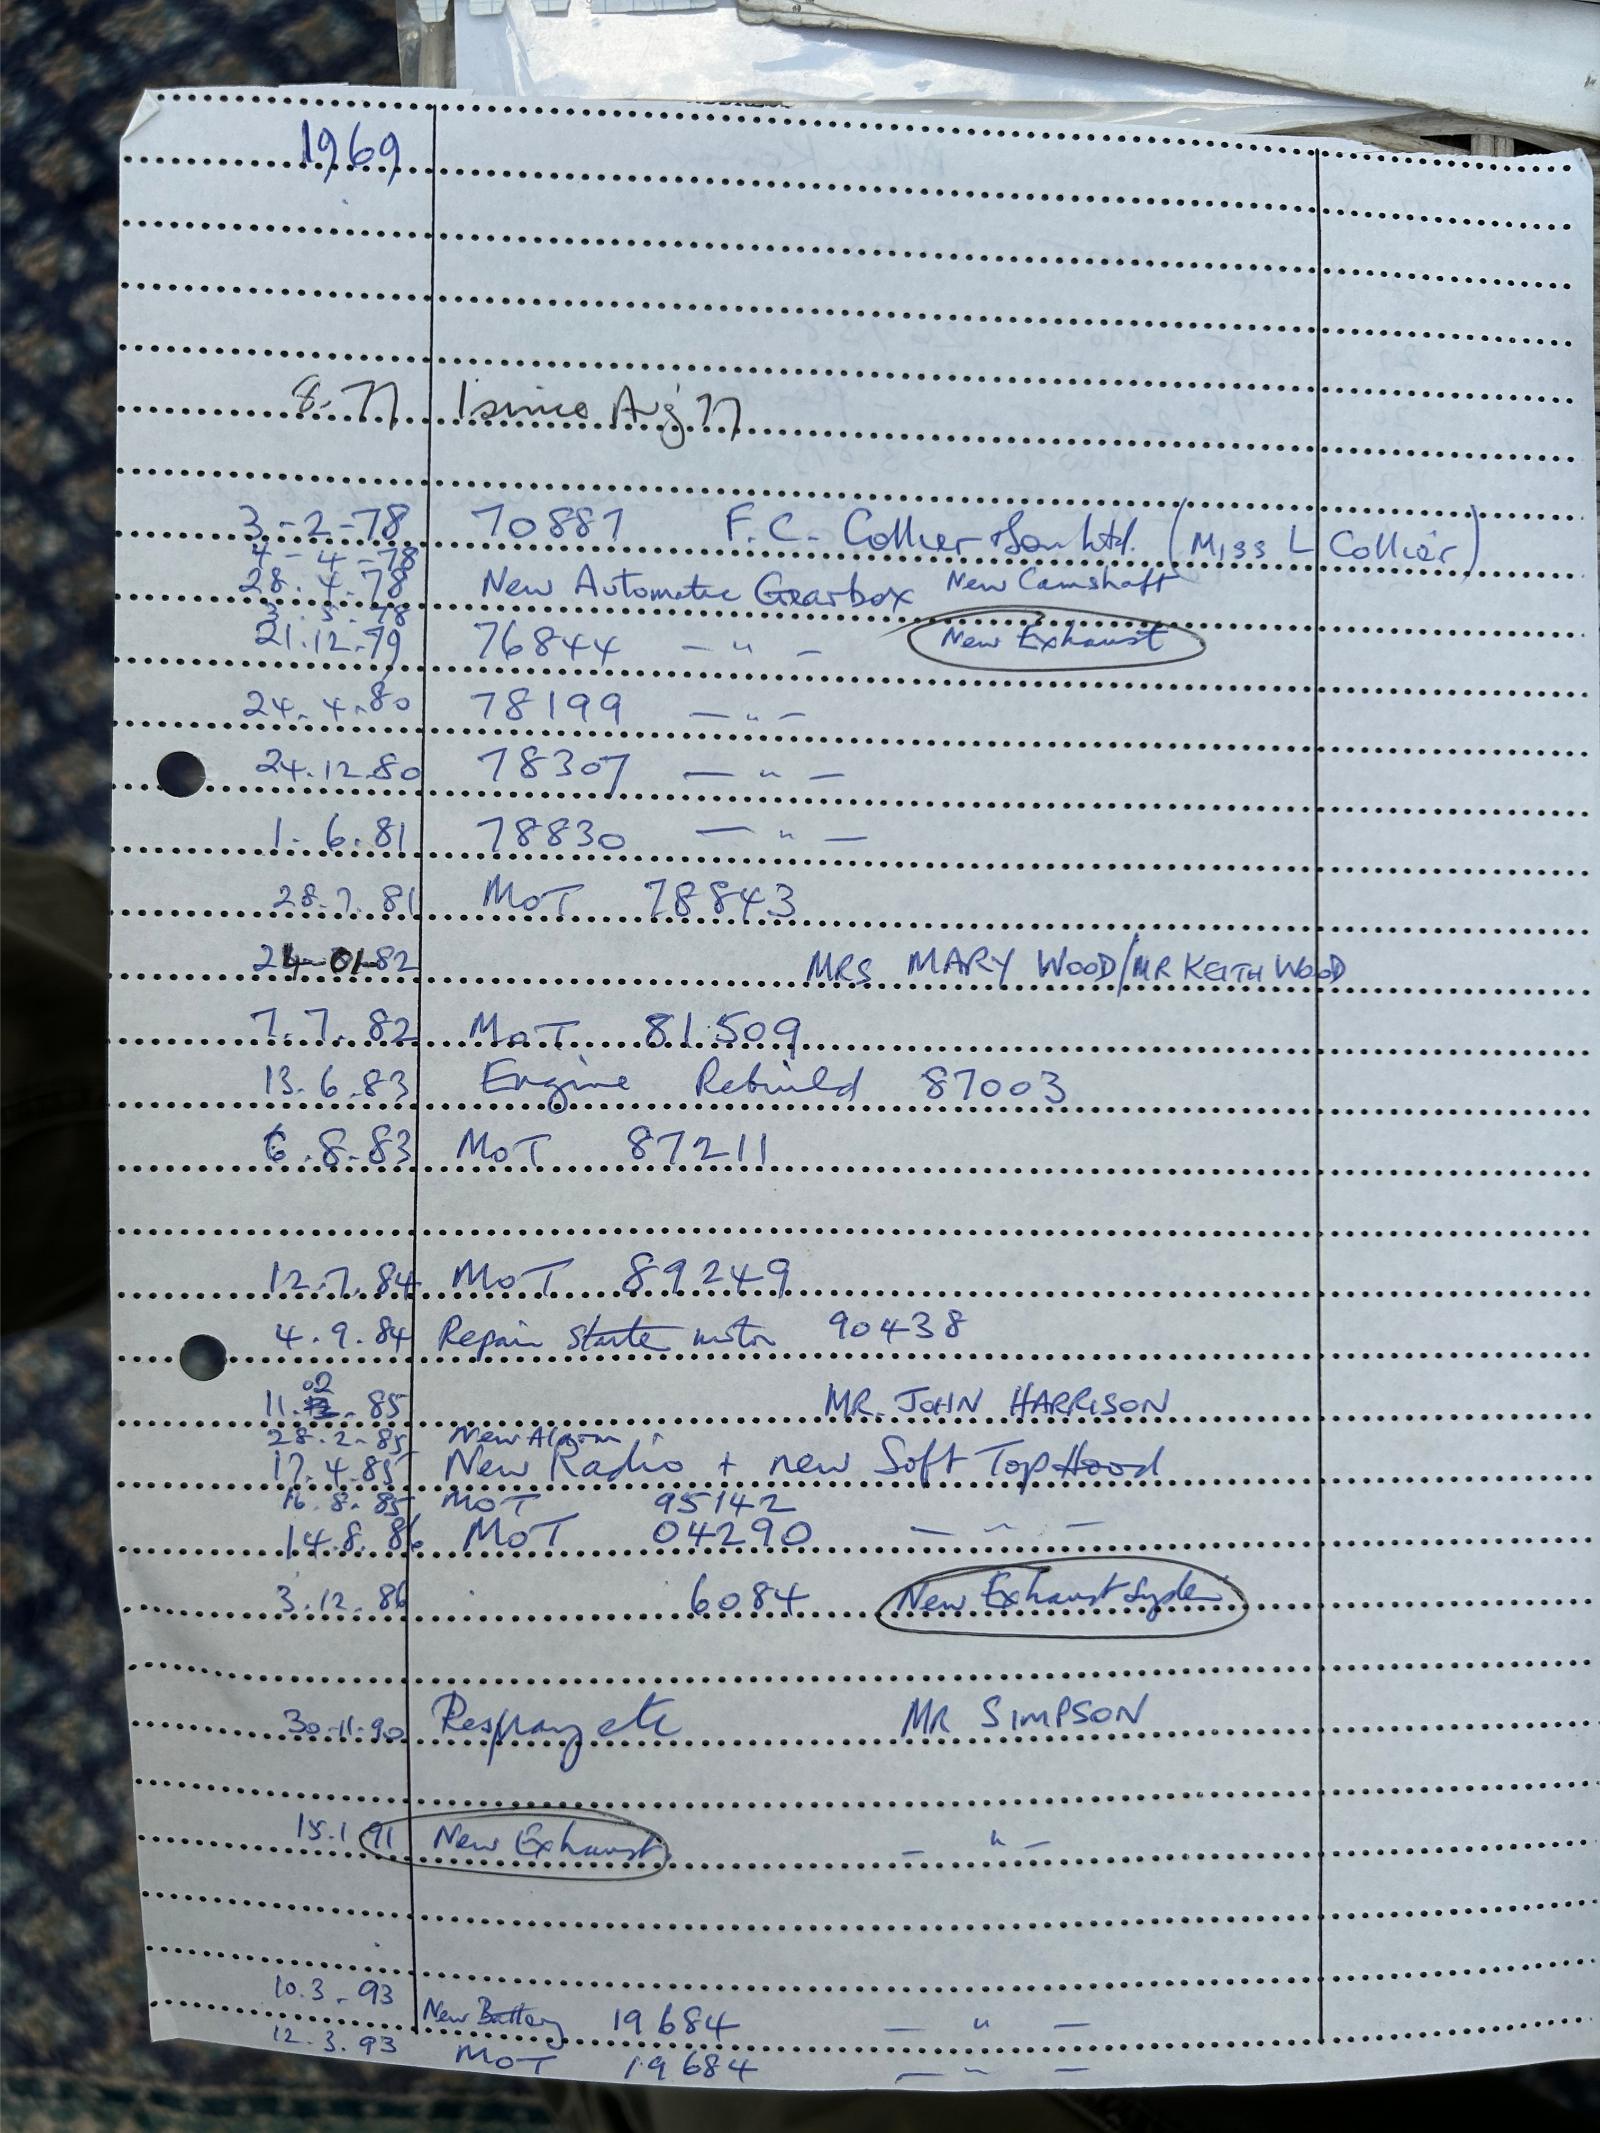 1969
8-77 1 since Aug 77
3-2-78 70887 F.C. Collier & Son Ltd. (Miss L Collier)
4-4-78
28.4.78 New Automatic Gearbox New Camshaft
3.5.78
21.12.79 76844 — " — New Exhaust
24.4.80 78199 — " —
24.12.80 78307 — " —
1.6.81 78830 — " —
28.7.81 MoT 78843
24-01-82 MRS MARY WOOD/MR KEITH WOOD
7.7.82 MoT 81509
13.6.83 Engine Rebuild 87003
6.8.83 MoT 87211
12.7.84 MoT 89249
4.9.84 Repair starter motor 90438
11.02.85 MR. JOHN HARRISON
28.2.85 New Alarm
17.4.85 New Radio + new Soft Top Hood
16.8.85 MOT 95142
14.8.86 MoT 04290 — " —
3.12.86 6084 New Exhaust System
30.11.90 Respray etc MR SIMPSON
15.1.91 New Exhaust — " —
10.3.93
New Battery 19684 — " —
12.3.93 MOT 19684 — " —